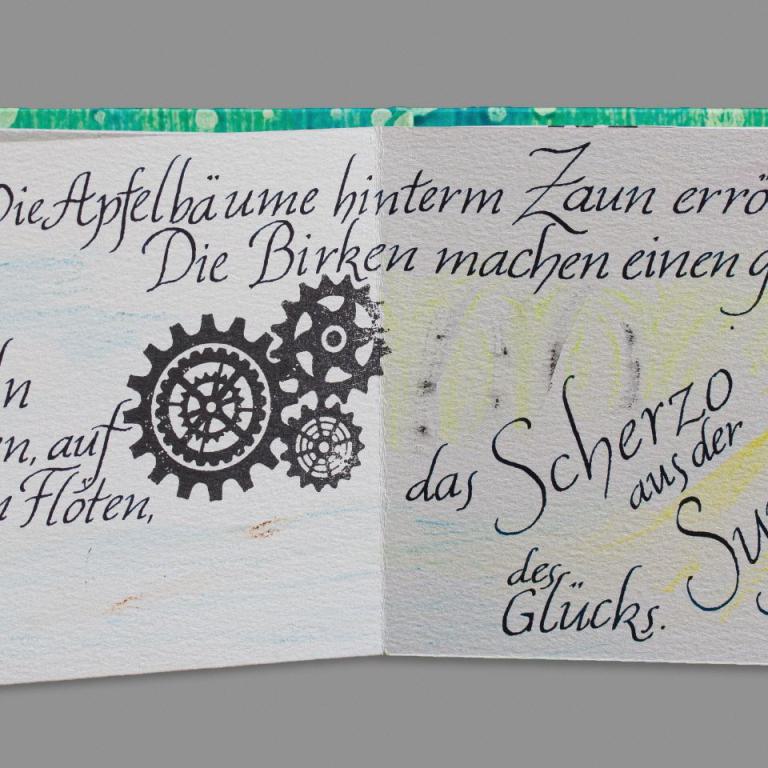 Die Apfelbäume hinterm Zaun errö
Die Birken machen einen g
ln
en, auf
n Flöten,
das Scherzo
aus der
Sy
des
Glücks.